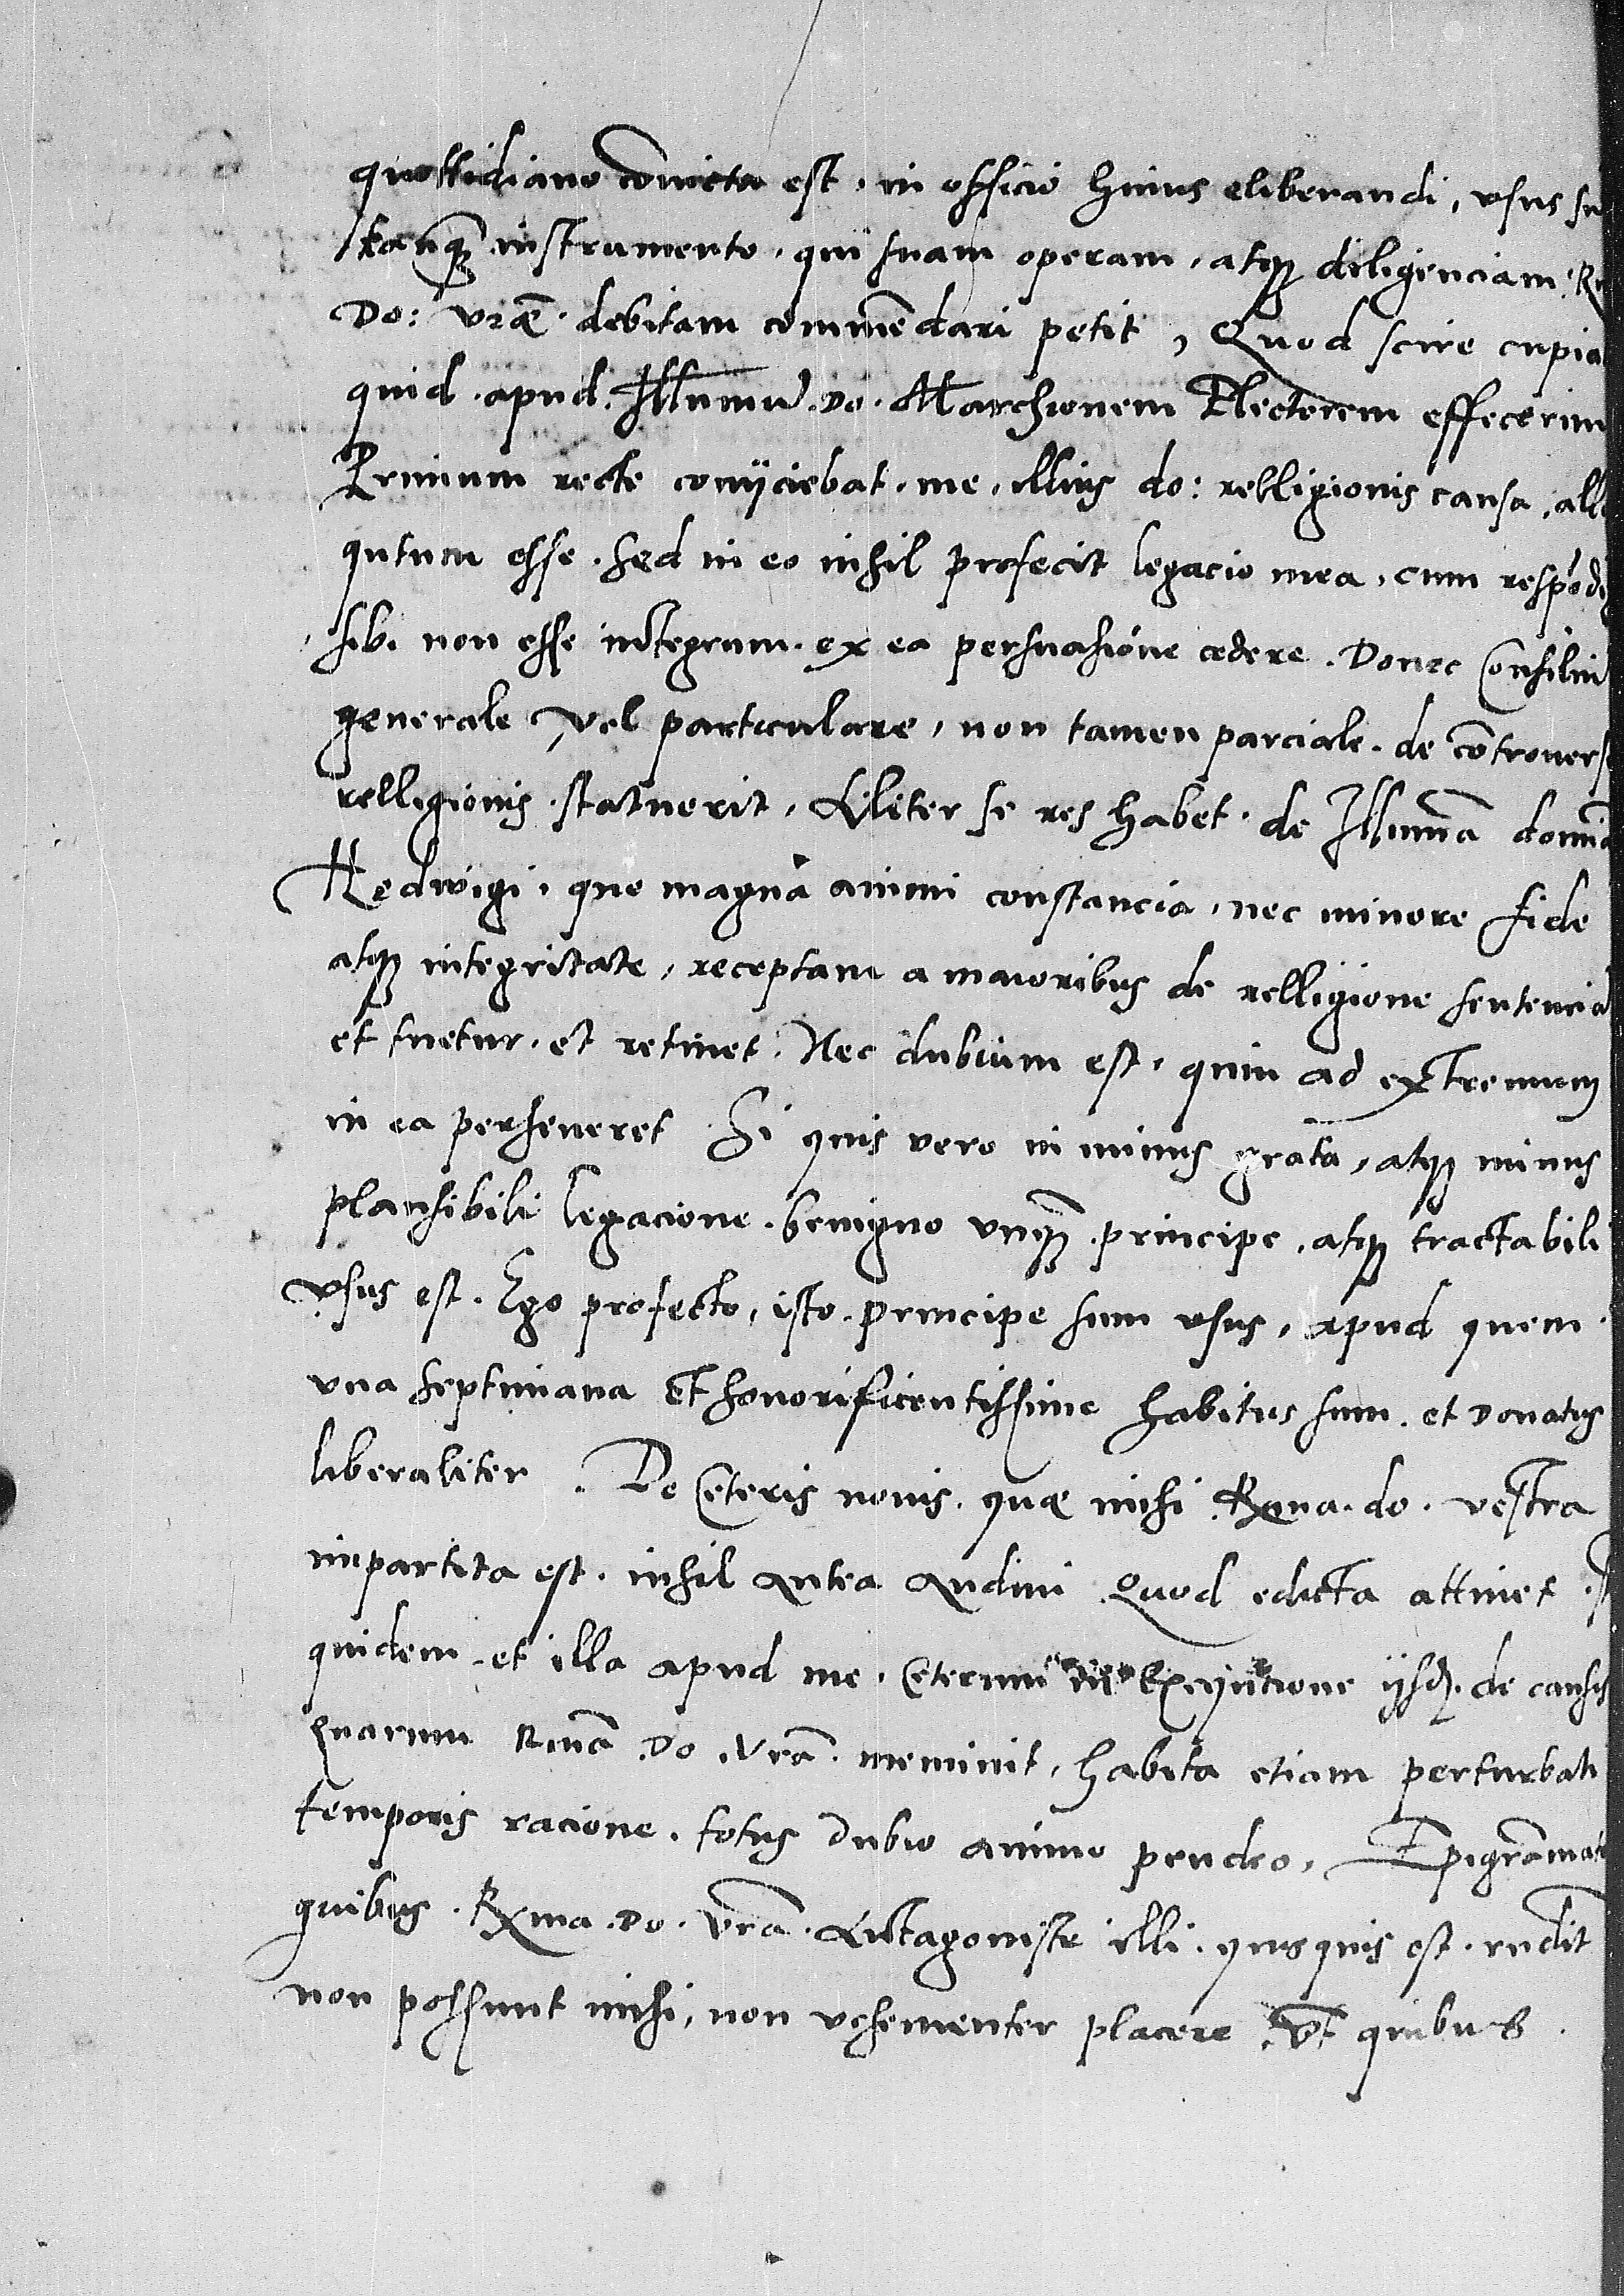 quottidiano convicta est, in officio huius eliberandi, usus su
tanq̃ instrumento, qui suam operam, atq₃ diligenciam R
Do: vrae debitam commẽdari petit, Quod scire cupia
quid apud Illumũ. Do. Marchionem Electorem effecerim
Primum recte coniiciebat, me, illius do: relligionis causa, allo
qutum esse. Sed in eo nihil profecit legacio mea, cum respõde
sibi non esse integrum. ex ea persuasione cedere. Donec Consiliũ
generale vel particulare, non tamen parciale. de cõtrovers
relligionis statuerit, Aliter se res habet. de Illumã domiã
Hedwigi, que magna animi constancia, nec minore fide
atq₃ integritate, receptam a maioribus de relligione sentenciã
et tuetur, et retinet. Nec dubium est, quin ad extremum
in ea perseveret Si quis vero in minus grata, atq₃ minus
plausibili legacione. benigno unq₃ principe, atq₃ tractabili
usus est. Ego profecto, isto principe sum usus, apud quem
una septimana et honorificentissime habitus sum. et donatus
liberaliter. De Ceteris novis, quae mihi Rma. do. vestra
impartita est. nihil antea audivi Quod edicta attinet. s
quidem et illa apud me. Ceterum in Exequutione iisd. de causis
quarum Rmã Do. Vrã. meminit, habita etiam perturbati
temporis racione. totus dubio animo pendeo, Epigrãmata
quibus Rma. Do. vrã. Antagoniste illi. quisquis est. rudit
non possunt mihi, non vehementer placere ut quibus.